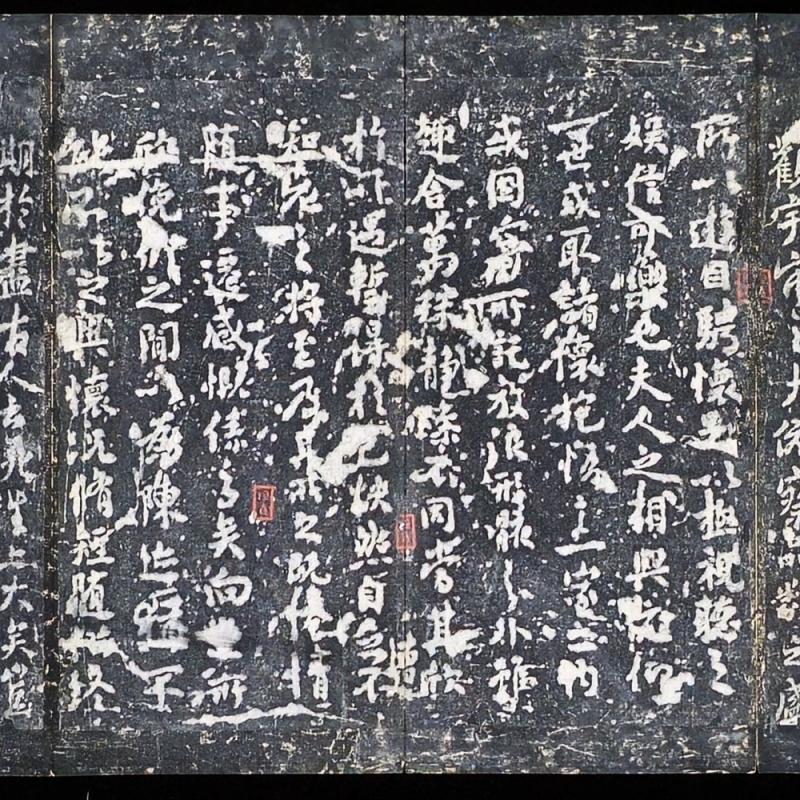 觀宇宙之大俯察品類之盛
所以遊目騁懷足以極視聽之
娛信可樂也夫人之相與俯仰
一世或取諸懷抱悟言一室之內
或因寄所託放浪形骸之外雖
趣舍萬殊靜躁不同當其欣
於所遇暫得於己快然自足不
知老之將至及其所之既惓情
隨事遷感慨係之矣向之所
欣俛仰之間以為陳迹猶不
能不以之興懷況脩短隨化終
期於盡古人云死生亦大矣豈